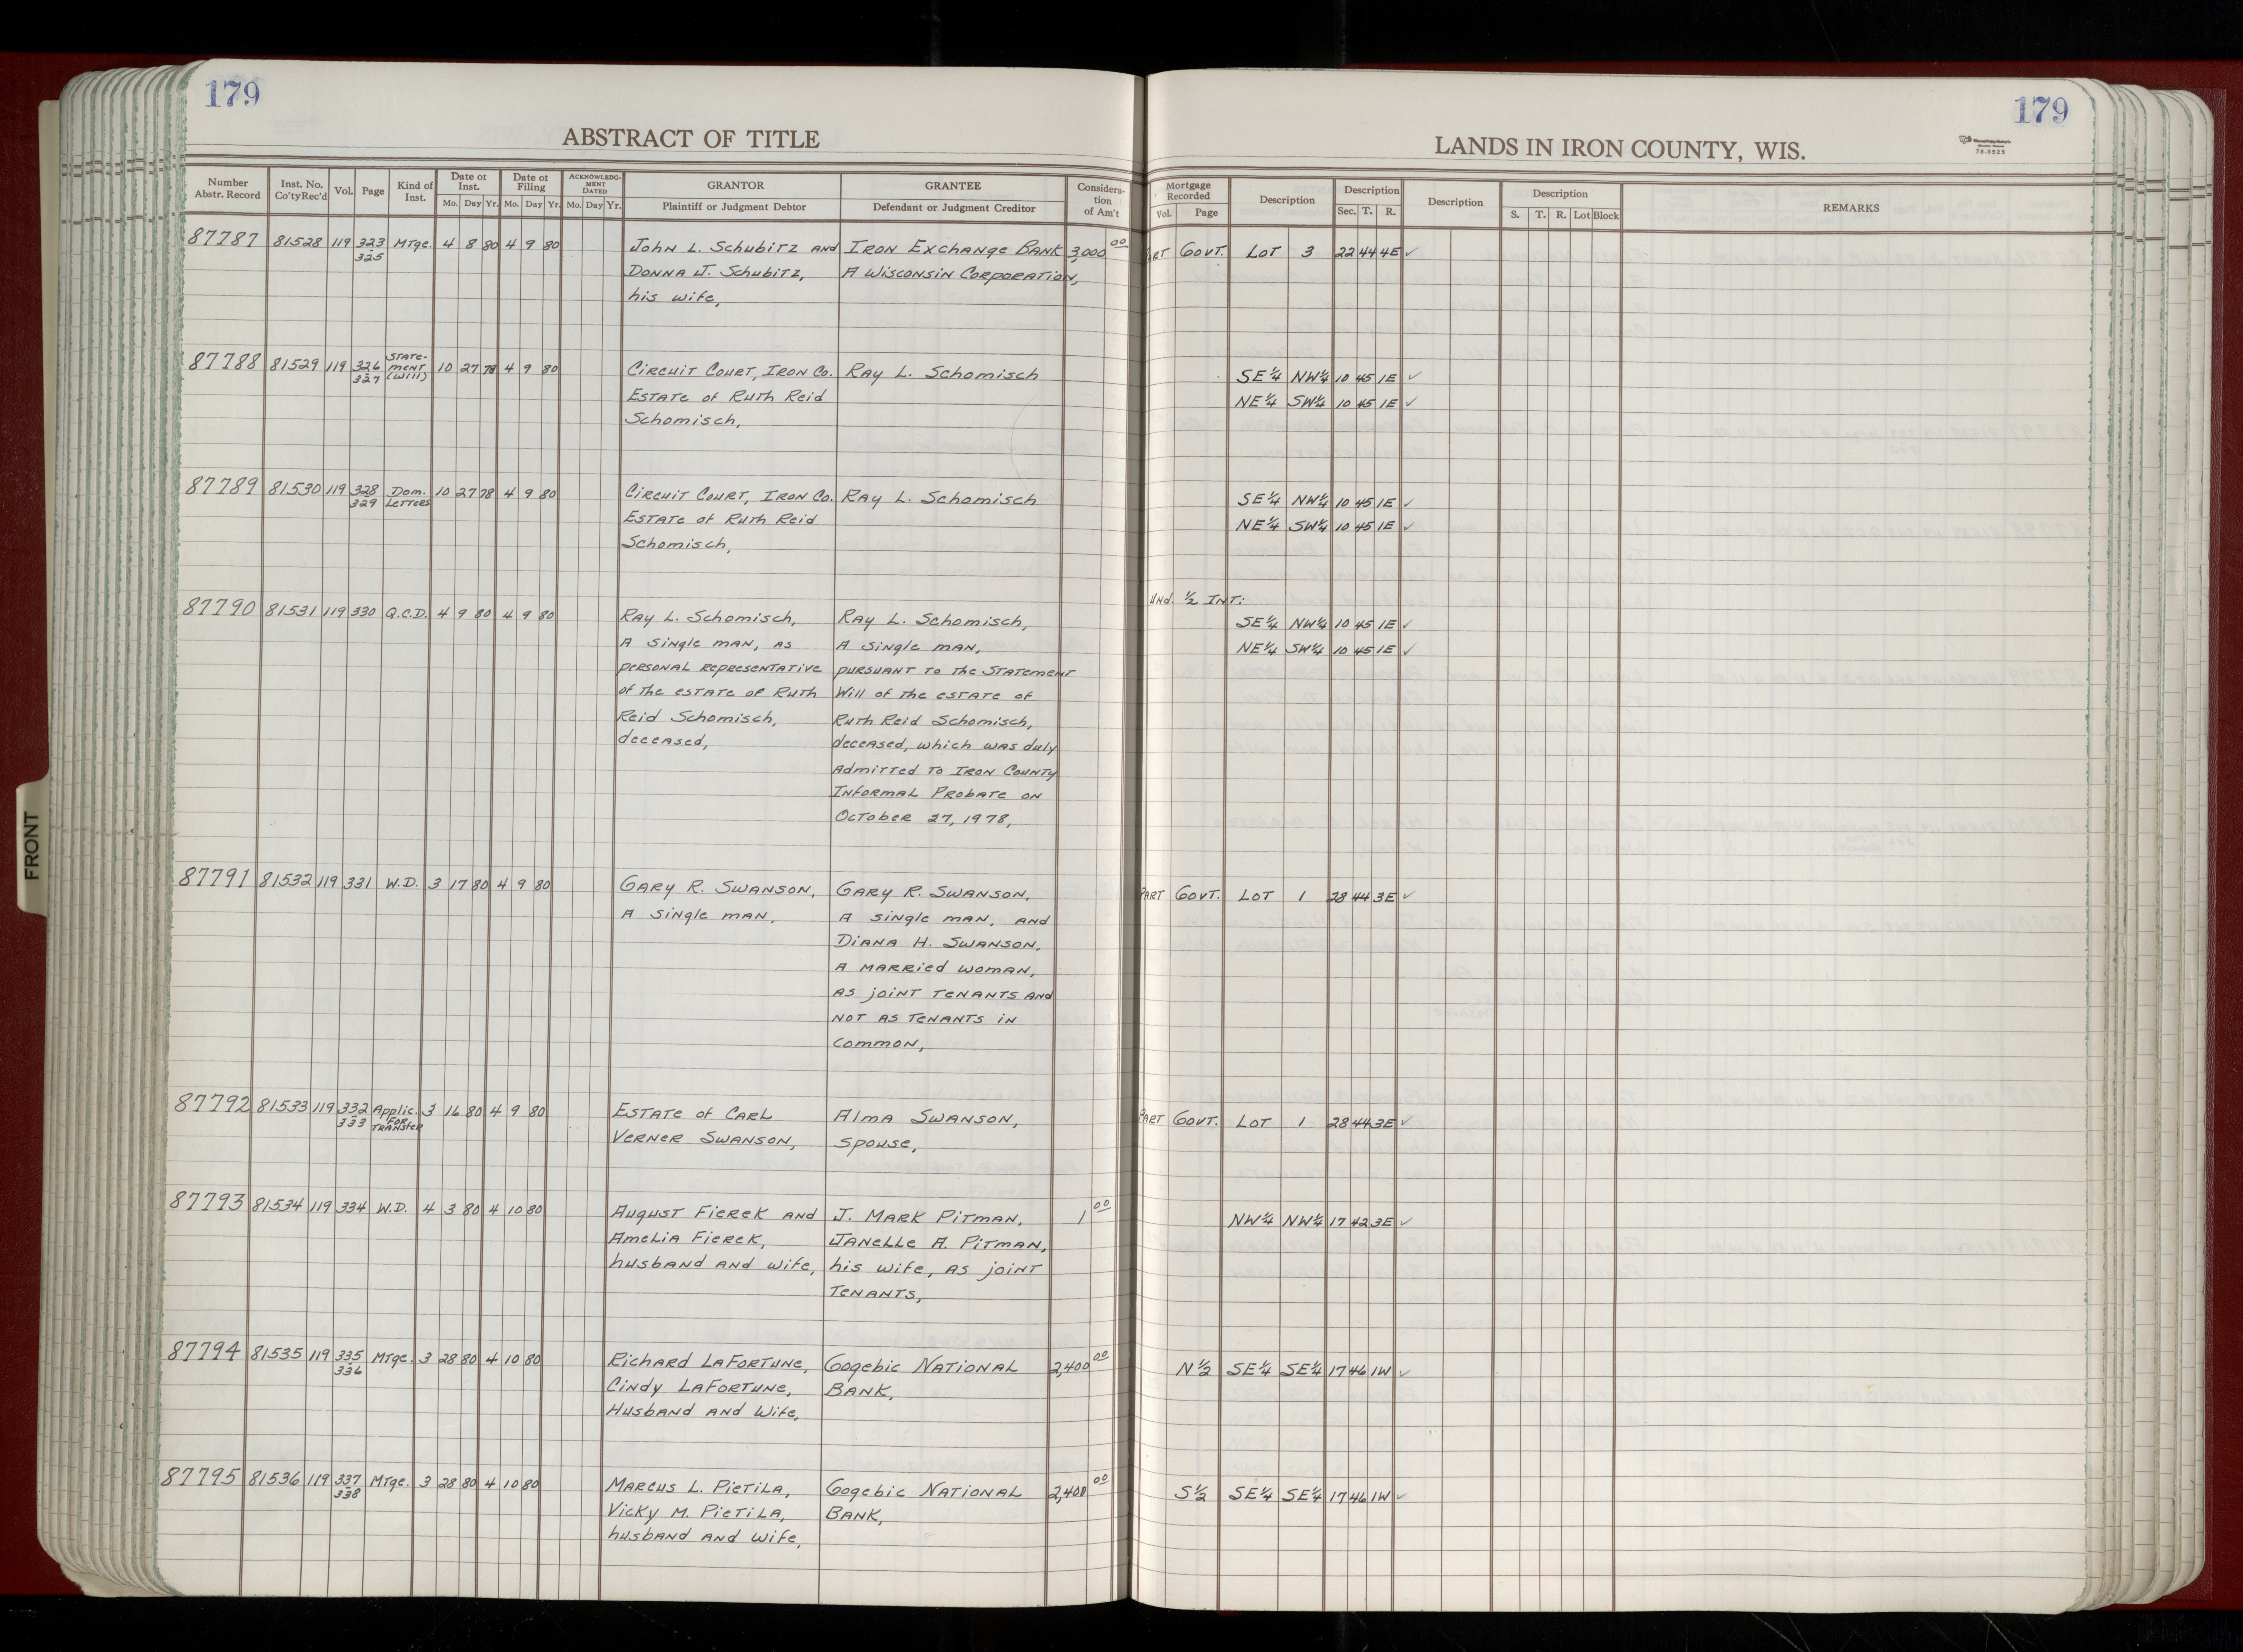 179
179
ABSTRACT OF TITLE
LANDS IN IRON COUNTY, WIS.
70-3525
Number Abstr. Record
Inst. No. Co'ty Rec'd
Vol.
Page
Kind of Inst.
Date of Inst.
Mo. Day Yr.
Date of Filing
Mo. Day Yr.
ACKNOWLEDGMENT DATED
Mo. Day Yr.
GRANTOR
Plaintiff or Judgment Debtor
GRANTEE
Defendant or Judgment Creditor
Consideration of Am't
Mortgage Recorded
Vol. Page
Description
Description
Sec. T. R.
Description
Description
S. T. R. Lot Block
REMARKS
87787 81528 119 323 Mtge. 4 8 80 4 9 80 John L. Schubitz and Iron Exchange Bank 3,000 00 Part Govt. Lot 3 22 44 4E ✓
325 Donna J. Schubitz, A Wisconsin Corporation,
his wife,
87788 81529 119 326 Statement (Will) 10 27 78 4 9 80 Circuit Court, Iron Co. Ray L. Schomisch SE¼ NW¼ 10 45 1E ✓
327 Estate of Ruth Reid NE¼ SW¼ 10 45 1E ✓
Schomisch,
87789 81530 119 328 Dom. 10 27 78 4 9 80 Circuit Court, Iron Co. Ray L. Schomisch SE¼ NW¼ 10 45 1E ✓
329 Letters Estate of Ruth Reid NE¼ SW¼ 10 45 1E ✓
Schomisch,
Und. ½ Int:
87790 81531 119 330 Q.C.D. 4 9 80 4 9 80 Ray L. Schomisch, Ray L. Schomisch, SE¼ NW¼ 10 45 1E ✓
A single man, as A single man, NE¼ SW¼ 10 45 1E ✓
personal representative pursuant to the Statement
of the estate of Ruth Will of the estate of
Reid Schomisch, Ruth Reid Schomisch,
deceased, deceased, which was duly
Admitted to Iron County
Informal Probate on
October 27, 1978,
87791 81532 119 331 W.D. 3 17 80 4 9 80 Gary R. Swanson, Gary R. Swanson, Part Govt. Lot 1 28 44 3E ✓
A single man, A single man, and
Diana H. Swanson,
A married woman,
as joint tenants and
not as tenants in
common,
87792 81533 119 332 Applic. 3 16 80 4 9 80 Estate of Carl Alma Swanson, Part Govt. Lot 1 28 44 3E ✓
333 For Transfer Verner Swanson, Spouse,
87793 81534 119 334 W.D. 4 3 80 4 10 80 August Fierek and J. Mark Pitman, 1 00 NW¼ NW¼ 17 42 3E ✓
Amelia Fierek, Janelle A. Pitman,
husband and wife, his wife, as joint
tenants,
87794 81535 119 335 Mtge. 3 28 80 4 10 80 Richard LaFortune, Gogebic National 2,400 00 N½ SE¼ SE¼ 17 46 1W ✓
336 Cindy LaFortune, Bank,
Husband and Wife,
87795 81536 119 337 Mtge. 3 28 80 4 10 80 Marcus L. Pietila, Gogebic National 2,400 00 S½ SE¼ SE¼ 17 46 1W ✓
338 Vicky M. Pietila, Bank,
husband and wife,
FRONT